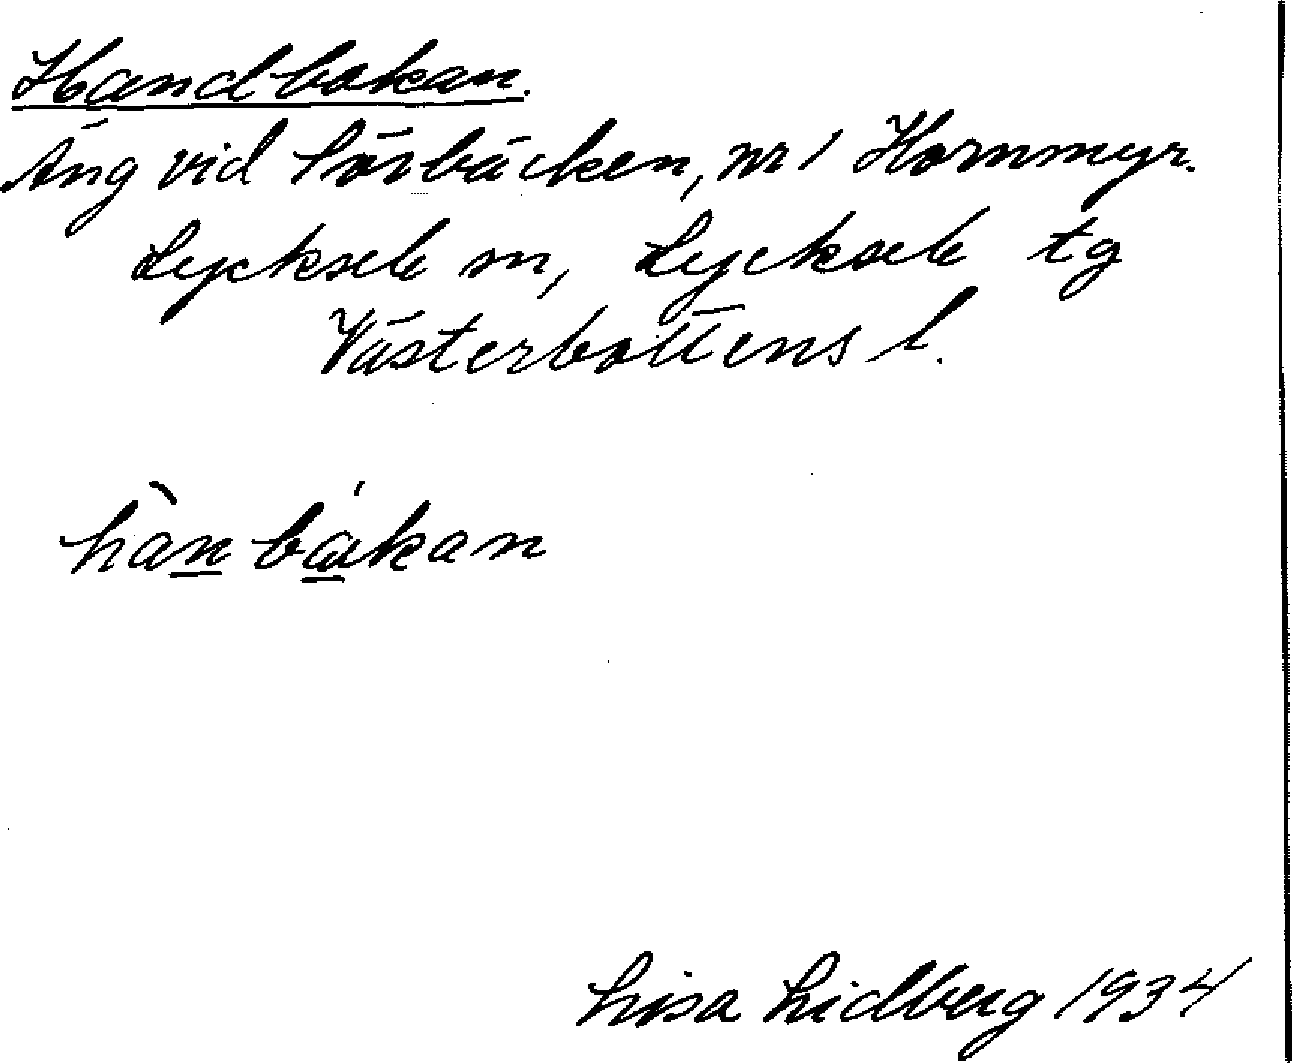 Handbakan.
Äng vid Sörbäcken, nr 1 Hornmyr.
Lycksele sn, Lycksele tg
Västerbottens l.
hàn bákan
Lisa Lidberg 1934